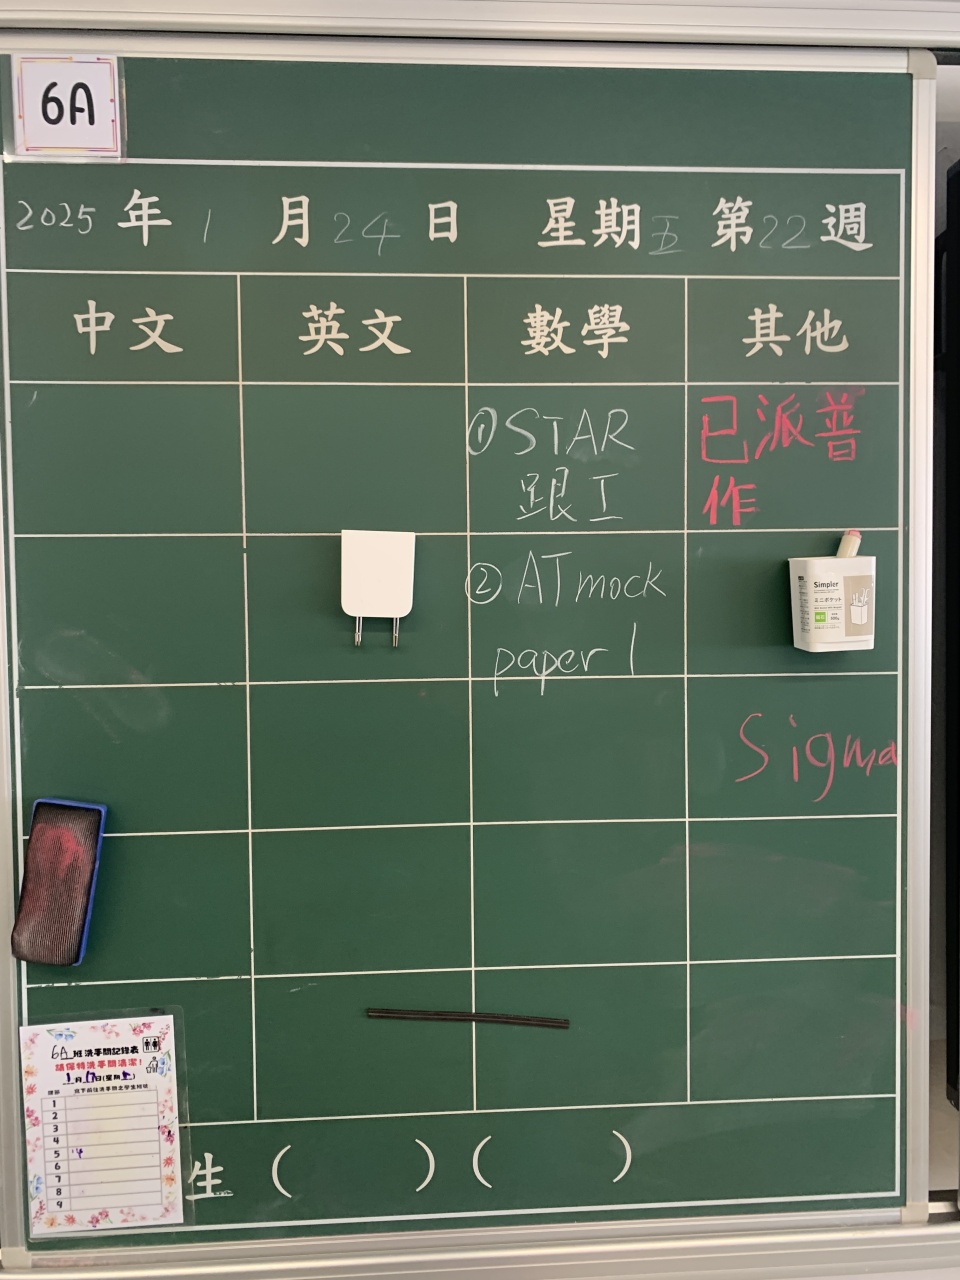 6A
2025 年 1 月 24 日 星期五 第22週
中文 英文 數學 其他
①STAR
跟工
已派普
作
②ATmock
paper 1
Simpler
ミニポケット
Sigma
6A班洗手間記錄表
請保持洗手間清潔!
1月17日(星期五)
1
2
3
4
5 4
6
7
8
9
生 ( ) ( )